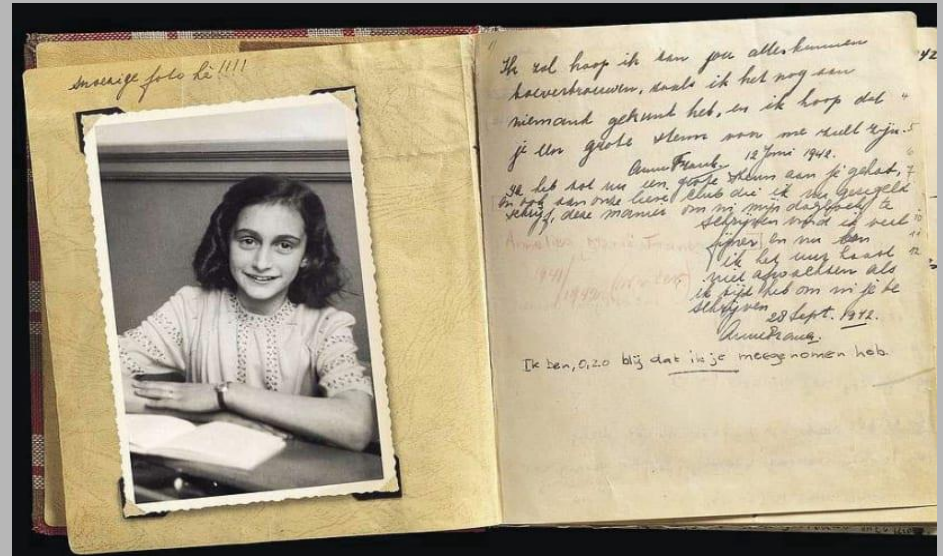 snoezige foto hè!!!!
11
42
Ik zal hoop ik aan jou alles kunnen
toevertrouwen, zoals ik het nog aan
niemand gekund heb, en ik hoop dat
je een grote steun voor me zult zijn.
Anne Frank. 12 Juni 1942.
Ik heb tot nu een grote steun aan je gehad,
en ook aan onze lieve club die ik nu geregeld
schrijf, deze manier om in mijn dagboek te
schrijven vind ik veel
fijner en nu
ik het uur haast
niet afwachten als
ik tijd heb om in je te
schrijven
28 Sept. 1942.
Anne Frank.
Ik ben, O, zo blij dat ik je meegenomen heb.